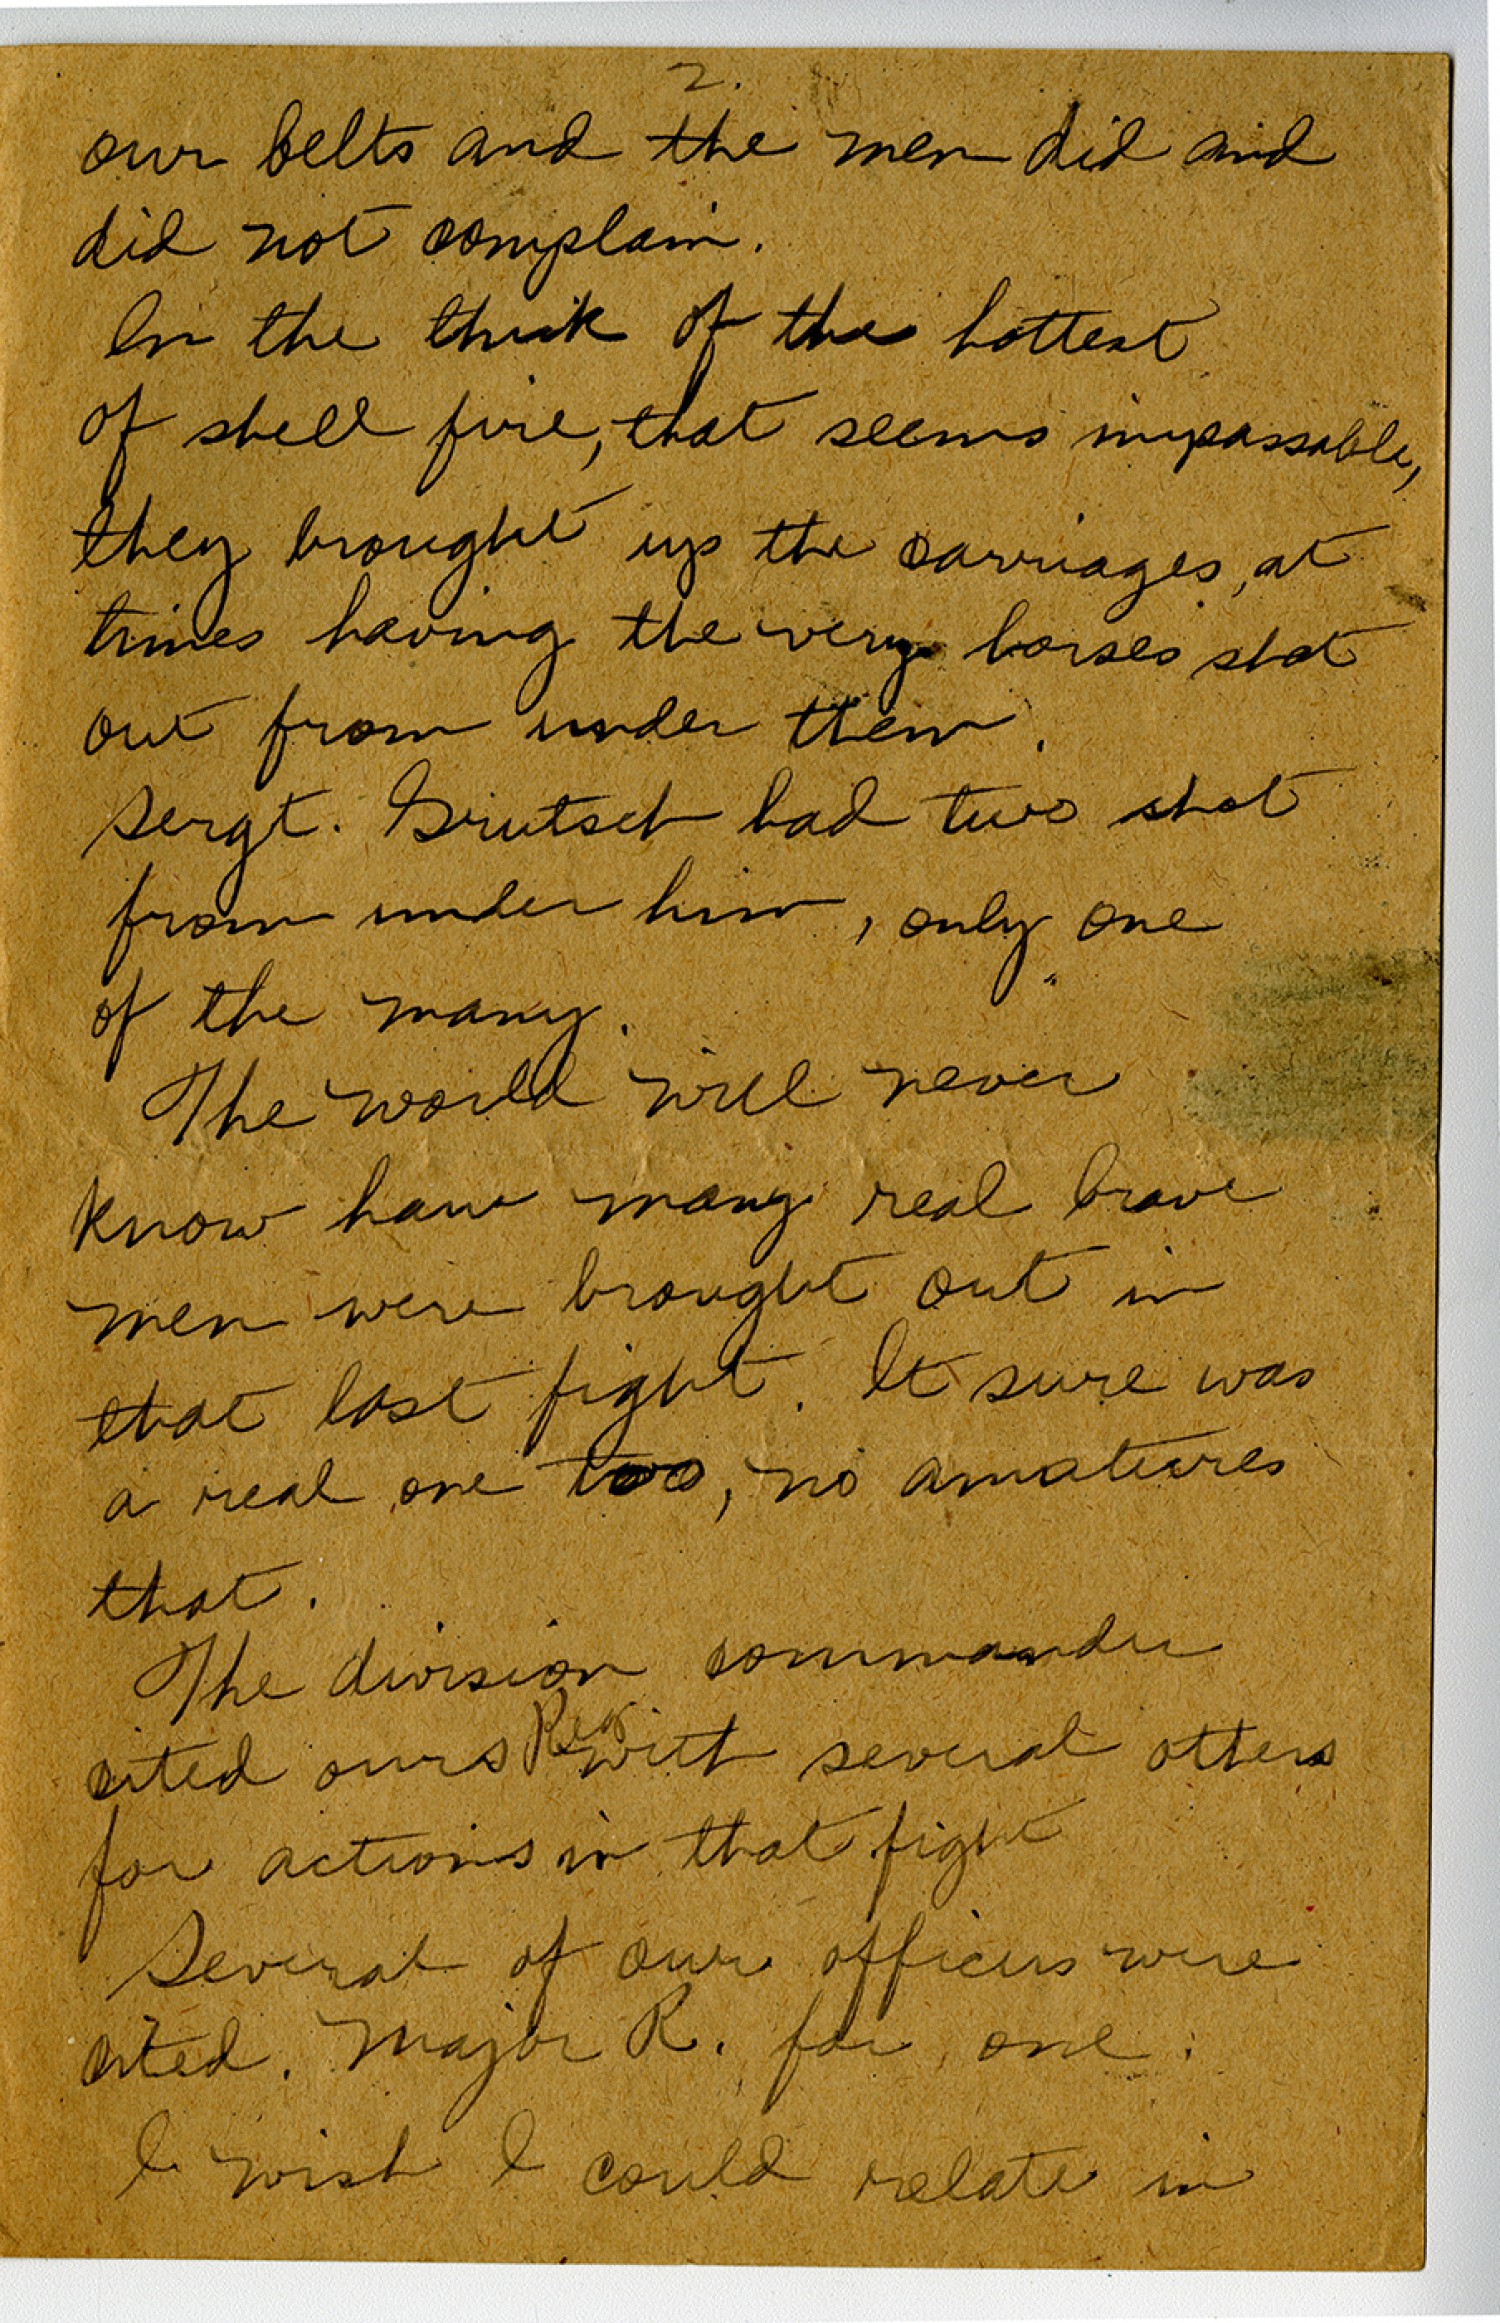 2.
our belts and the men did and
did not complain.
In the thick of the hottest
of shell fire, that seems impassable,
they brought up the carriages, at
times having the very horses shot
out from under them.
Sergt. Grutsch had two shot
from under him, only one
of the many.
The world will never
know how many real brave
men were brought out in
that last fight. It sure was
a real one too, no amatures
that.
The division commander
cited ours Reg with several others
for actions in that fight
Several of our officers were
cited. Major R. for one.
I wish I could relate in